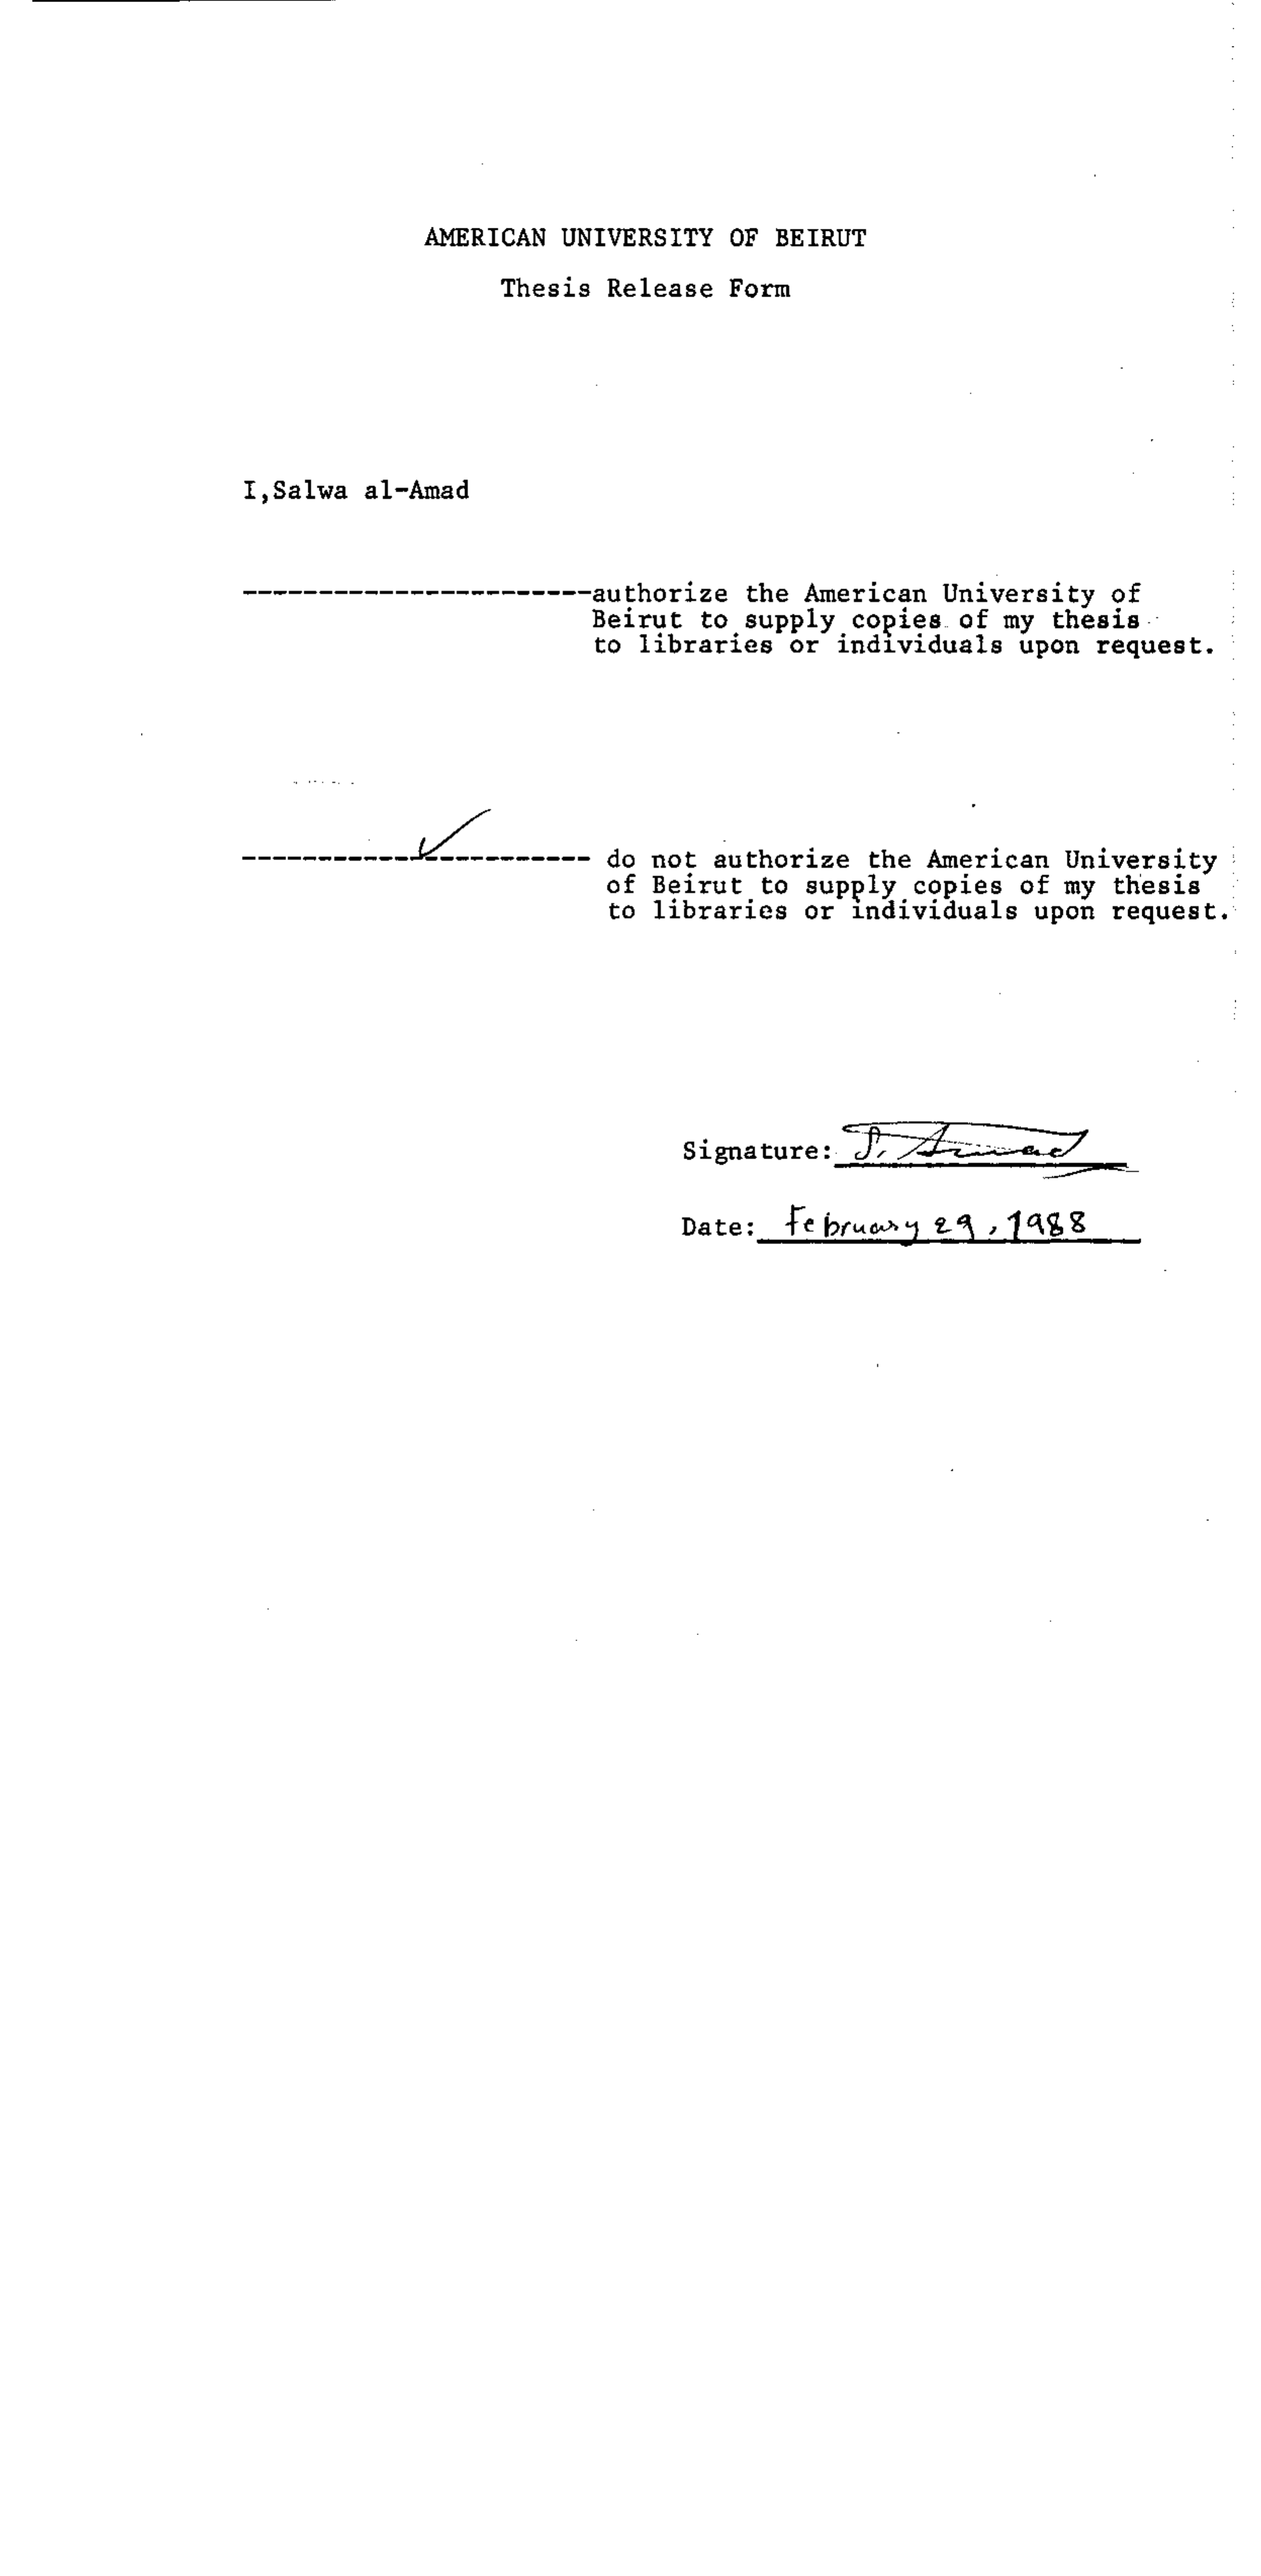 AMERICAN UNIVERSITY OF BEIRUT
Thesis Release Form
I,Salwa al-Amad
-----------------------authorize the American University of
Beirut to supply copies of my thesis
to libraries or individuals upon request.
----------------------- do not authorize the American University
of Beirut to supply copies of my thesis
to libraries or individuals upon request.
Signature: S. Amad
Date: February 29, 1988